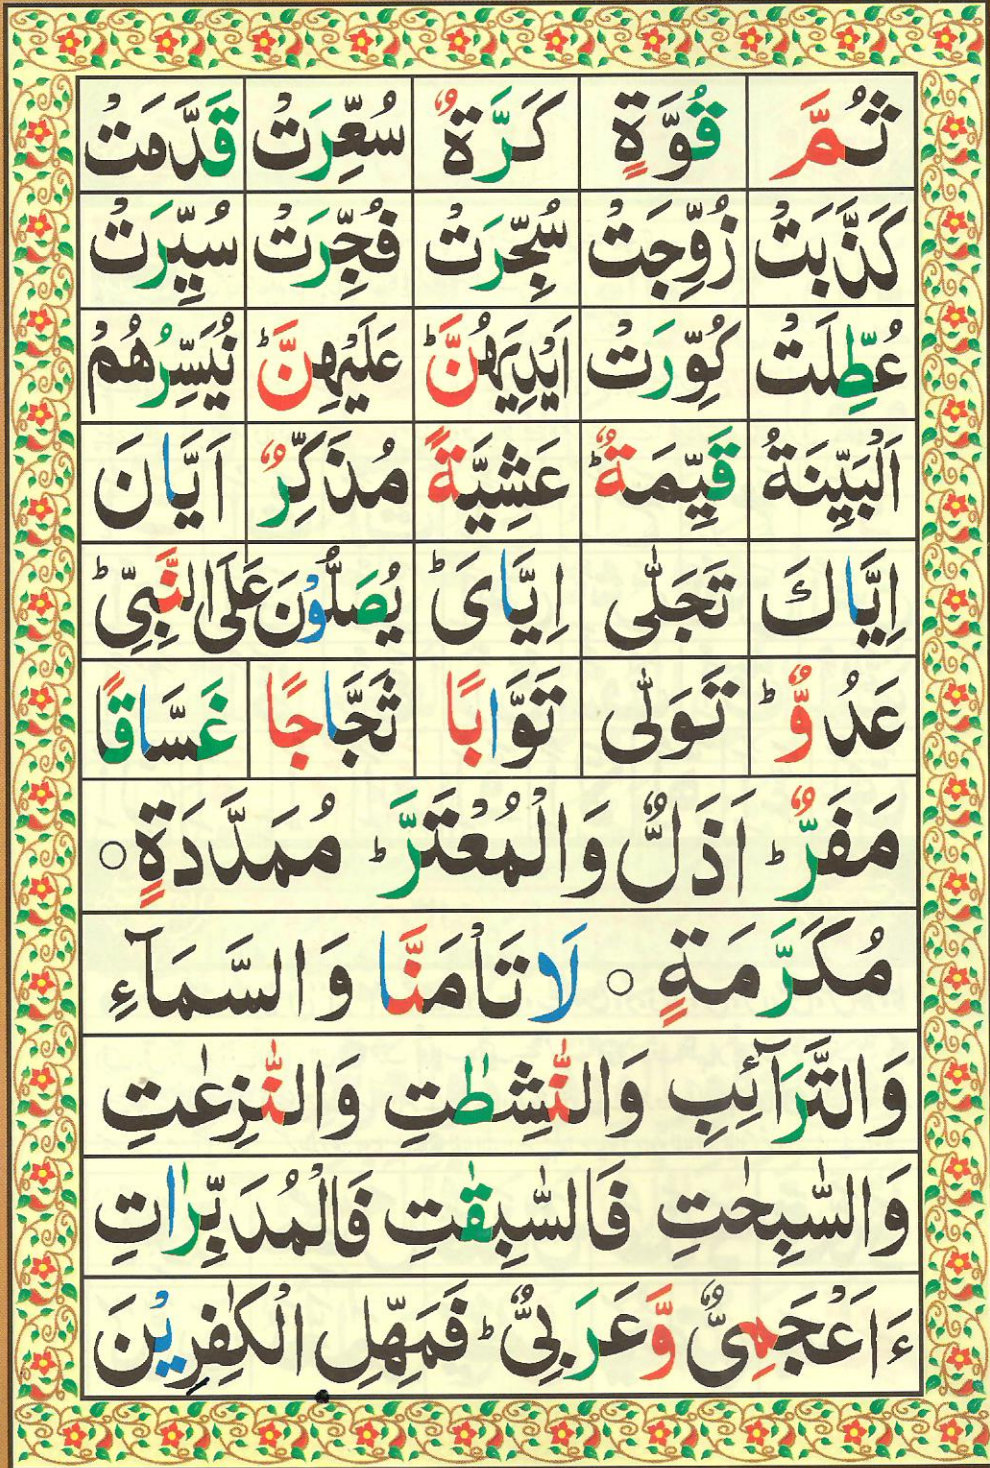 ثُمَّ قُوَّةٍ كَرَّةٌ سُعِّرَتْ قَدَّمَتْ
كَذَّبَتْ زُوِّجَتْ سُجِّرَتْ فُجِّرَتْ سُيِّرَتْ
عُطِّلَتْ كُوِّرَتْ اَيْدِيَهُنَّ ؕ عَلَيْهِنَّ ؕ نُيَسِّرُهُمْ
اَلْبَيِّنَةُ قَيِّمَةٌ ؕ عَشِيَّةً مُذَكِّرٌ اَيَّانَ
اِيَّاكَ تَجَلّٰى اِيَّاىَ ؕ يُصَلُّوْنَ عَلَى النَّبِىِّ ؕ
عَدُوٌّ ؕ تَوَلّٰى تَوَّابًا ثَجَّاجًا غَسَّاقًا
مَفَرٌّ ؕ اَذَلٌّ وَالْمُعْتَرَّ ؕ مُمَدَّدَةٍ ○
مُكَرَّمَةٍ ○ لَا تَاْمَنَّا وَالسَّمَآءِ
وَالتَّرَآئِبِ وَالنّٰشِطٰتِ وَالنّٰزِعٰتِ
وَالسّٰبِحٰتِ فَالسّٰبِقٰتِ فَالْمُدَبِّرٰاتِ
ءَاَعْجَمِىٌّ وَّعَرَبِىٌّ ؕ فَمَهِّلِ الْكٰفِرِيْنَ